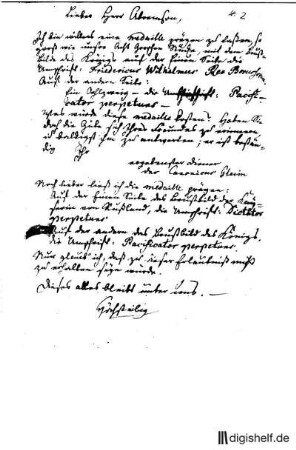 Lieber Herr Abramson,
#. 2
Ich bin willens eine Medaille prägen zu lassen, so
groß wie unsre Acht Groschen Stücke, mit dem Brust-
bilde des Königs auf der Einen Seite, die
Umschrift: Fridericus Wilhelmus Rex Boruss.
Auf der andern Seite:
Ein Oehlzweig - die Umschrift: Pacifi-
cator perpetuus -
Was würde diese Medaille kosten? Haben Sie
doch die Güte sich Ihres Freundes zu erinnern,
zu antworten, er ist bestän-
dig Ihr
ergebenster Diener
der Canonicus Gleim
Noch lieber ließ ich die Medaille prägen:
Auf der Einen Seite das Brustbild der Kay-
serin von Rußland, die Umschrift: Dictator
perpetuus
Auf der andern das Brustbild des Königs,
die Umschrift: Pacificator perpetuus.
Nur glaub ich, daß zu dieser Erlaubniß
zu erhalten seyn würde.
Dieses alles bleibt unter uns. -
digishelf.de